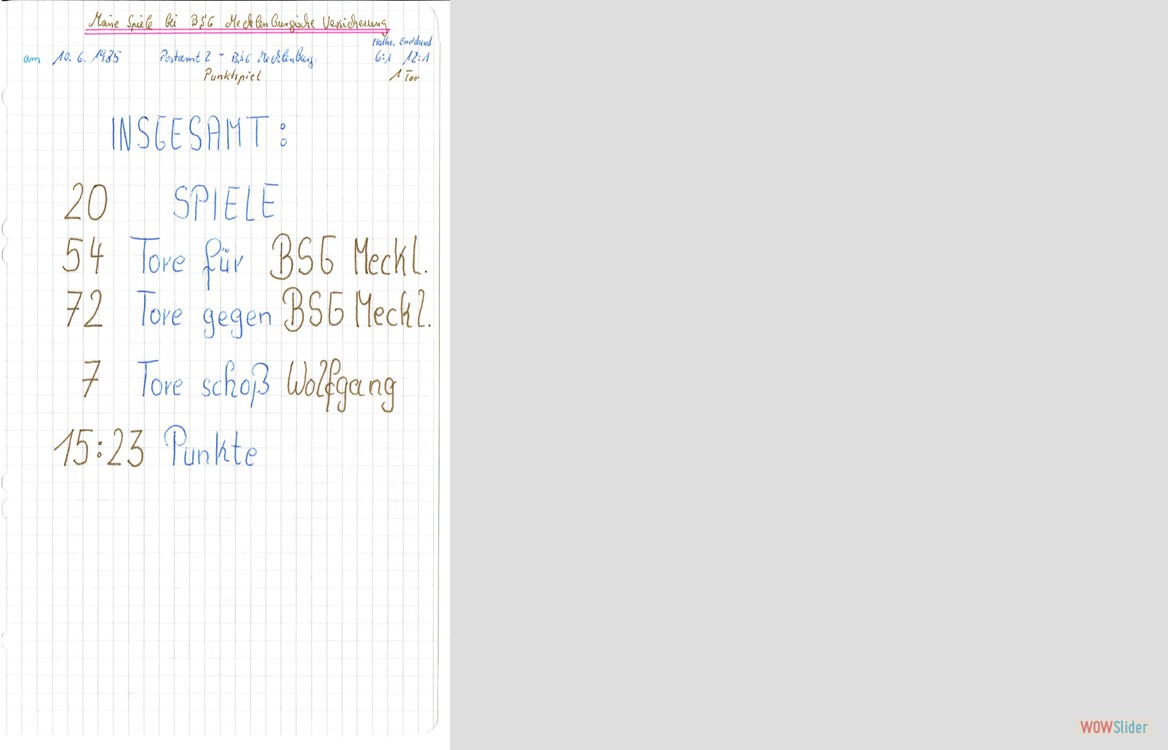 Meine Spiele bei BSG Mecklenburgische Versicherung
Halbz. Endstand
am 10. 6. 1985 Postamt 2 - BSG Mecklenburg. 6:1 12:1
Punktspiel 1 Tor
INSGESAMT:
20 SPIELE
54 Tore für BSG Meckl.
72 Tore gegen BSG Meckl.
7 Tore schoß Wolfgang
15:23 Punkte
WOWSlider